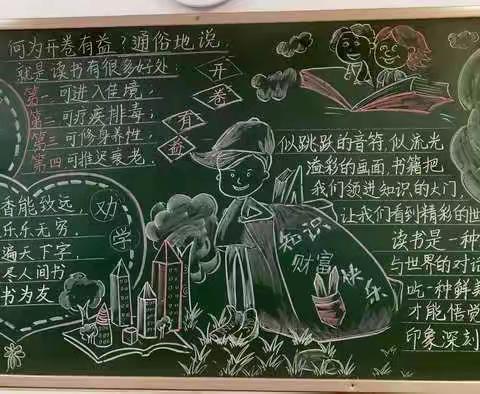 何为开卷有益？通俗地说，
就是读书有很多好处
第一可进入佳境，
第二可疗疾排毒；
第三可修身养性，
第四可推迟衰老。
开
卷
有
益
香能致远，
乐乐无穷
遍天下字，
尽人间书
书为友
劝
学
似跳跃的音符，似流光
溢彩的画面，书籍把
我们领进知识的大门，
让我们看到精彩的世
读书是一种
与世界的对话
吃一种鲜美
才能悟觉
印象深刻
知识
财富
快乐